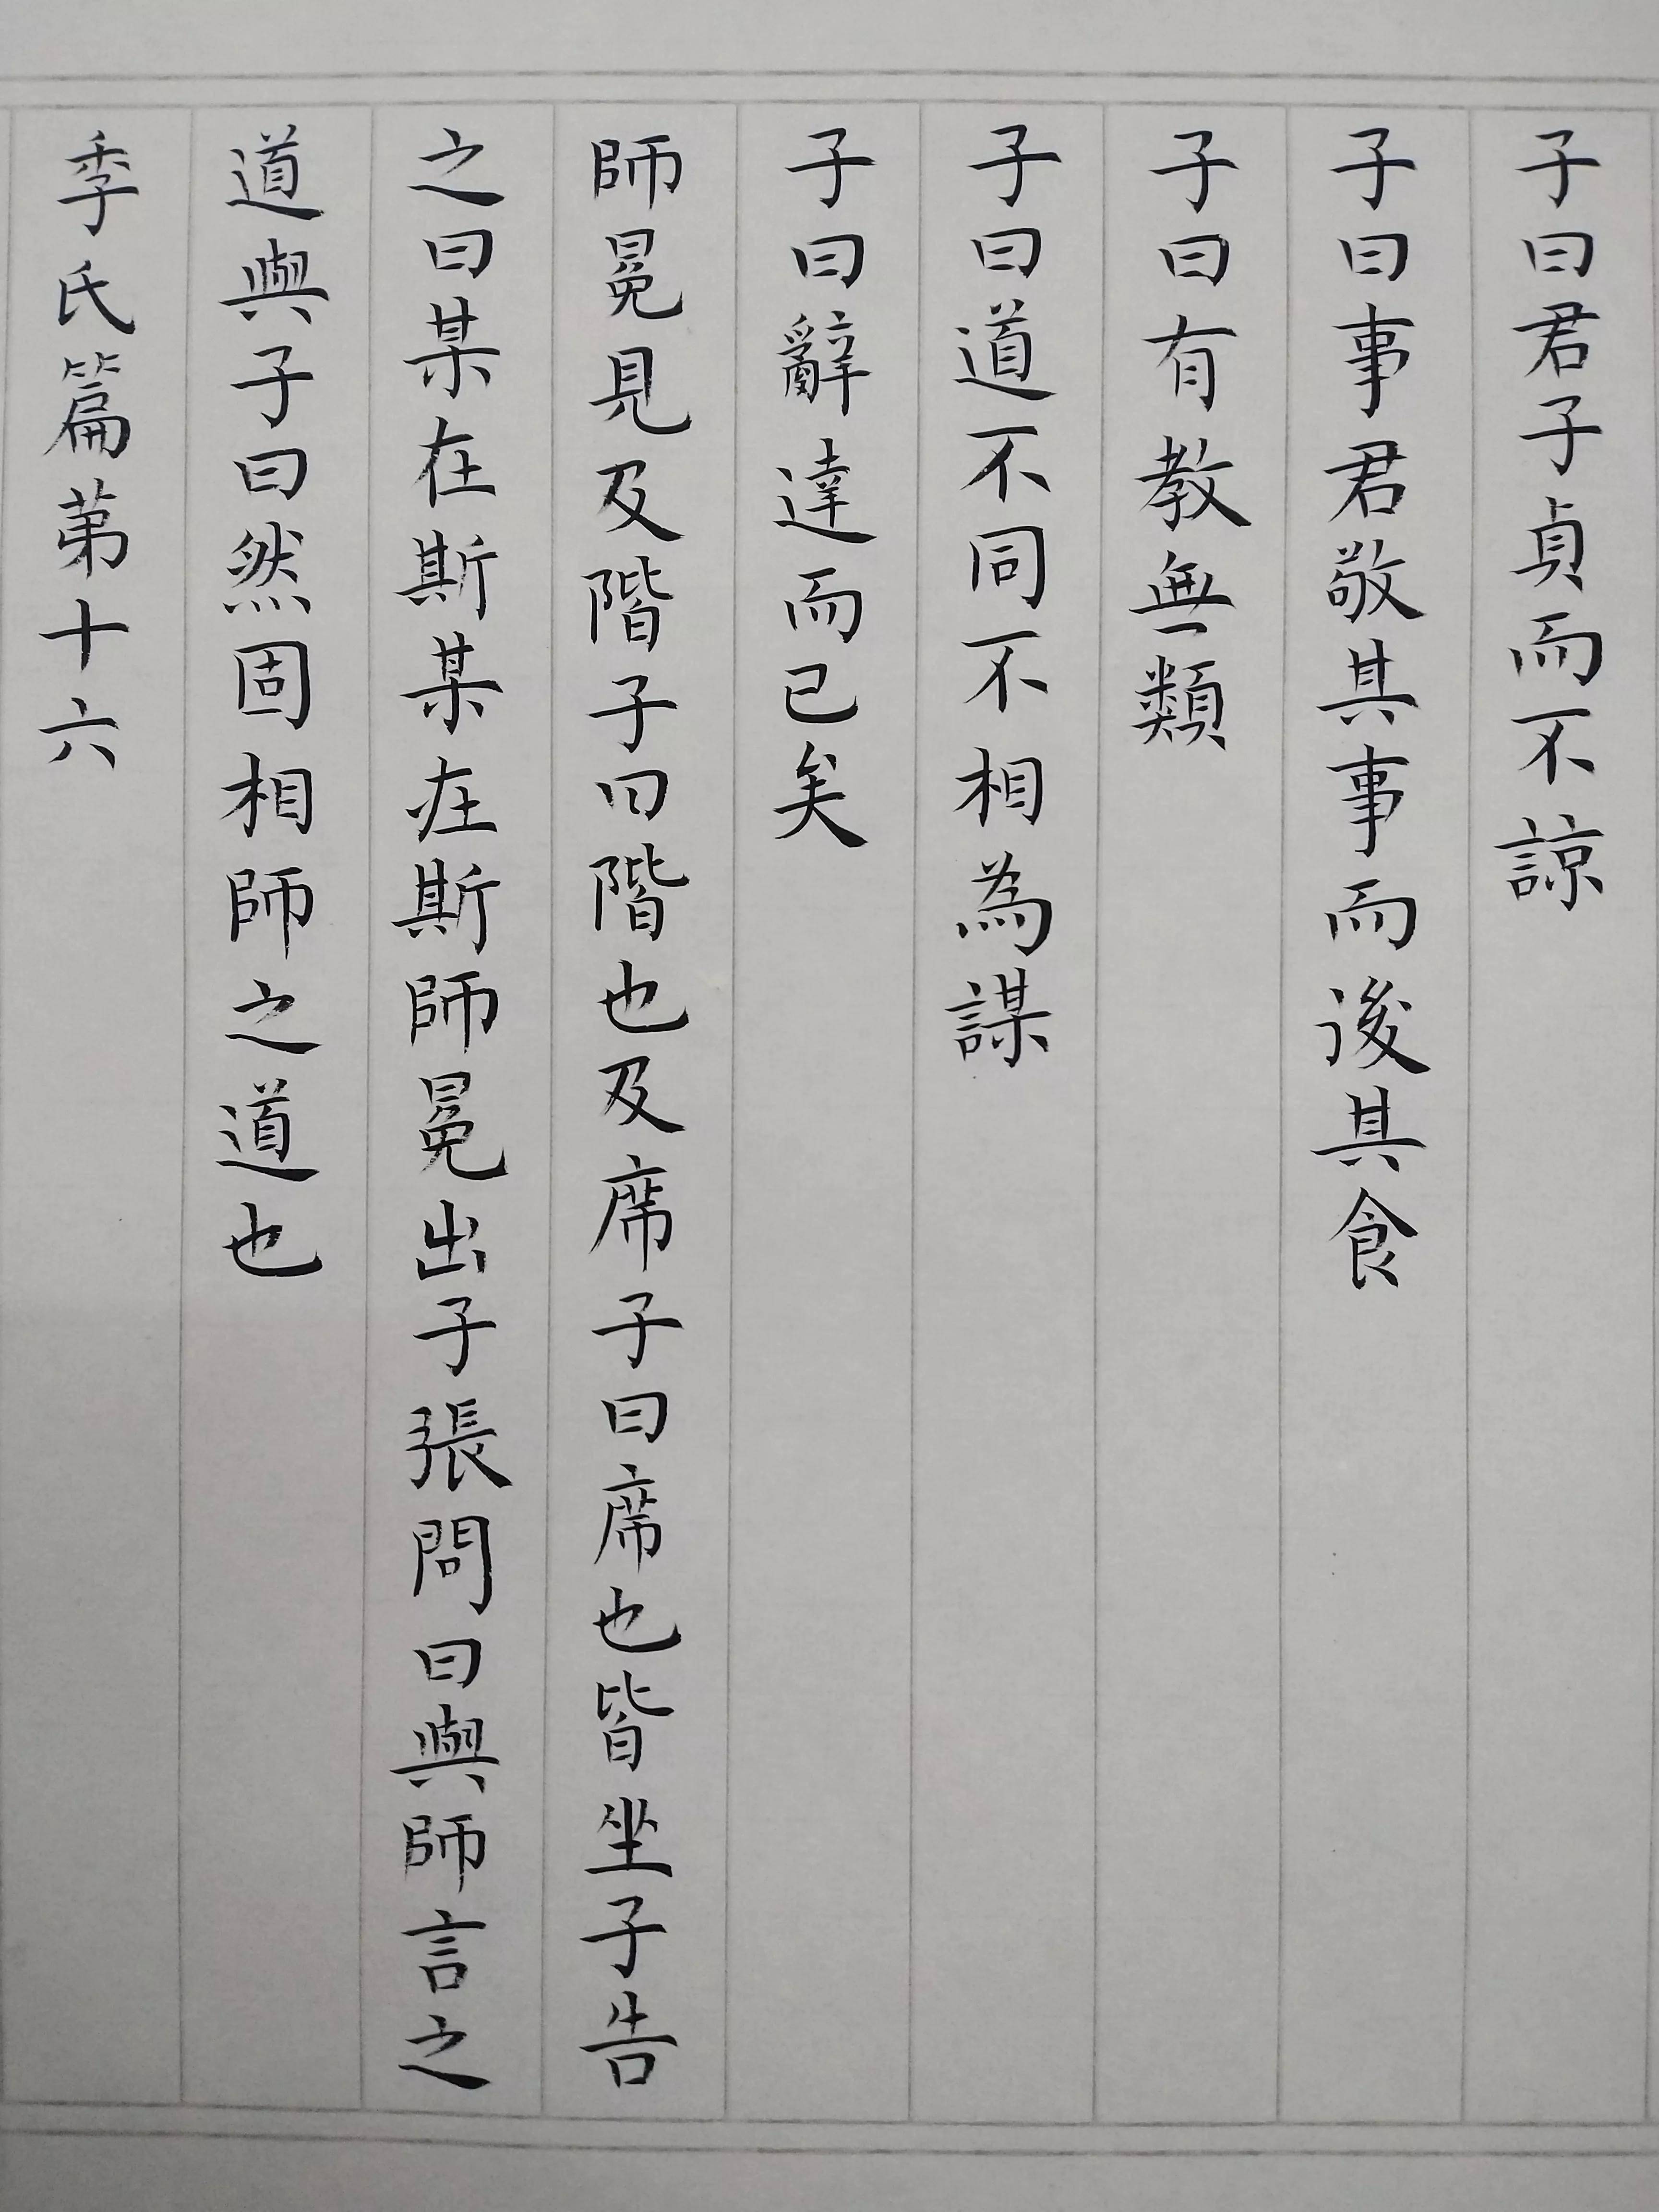 子曰君子貞而不諒
子曰事君敬其事而後其食
子曰有教無類
子曰道不同不相為謀
子曰辭達而已矣
師冕見及階子曰階也及席子曰席也皆坐子告
之曰某在斯某在斯師冕出子張問曰與師言之
道與子曰然固相師之道也
季氏篇第十六